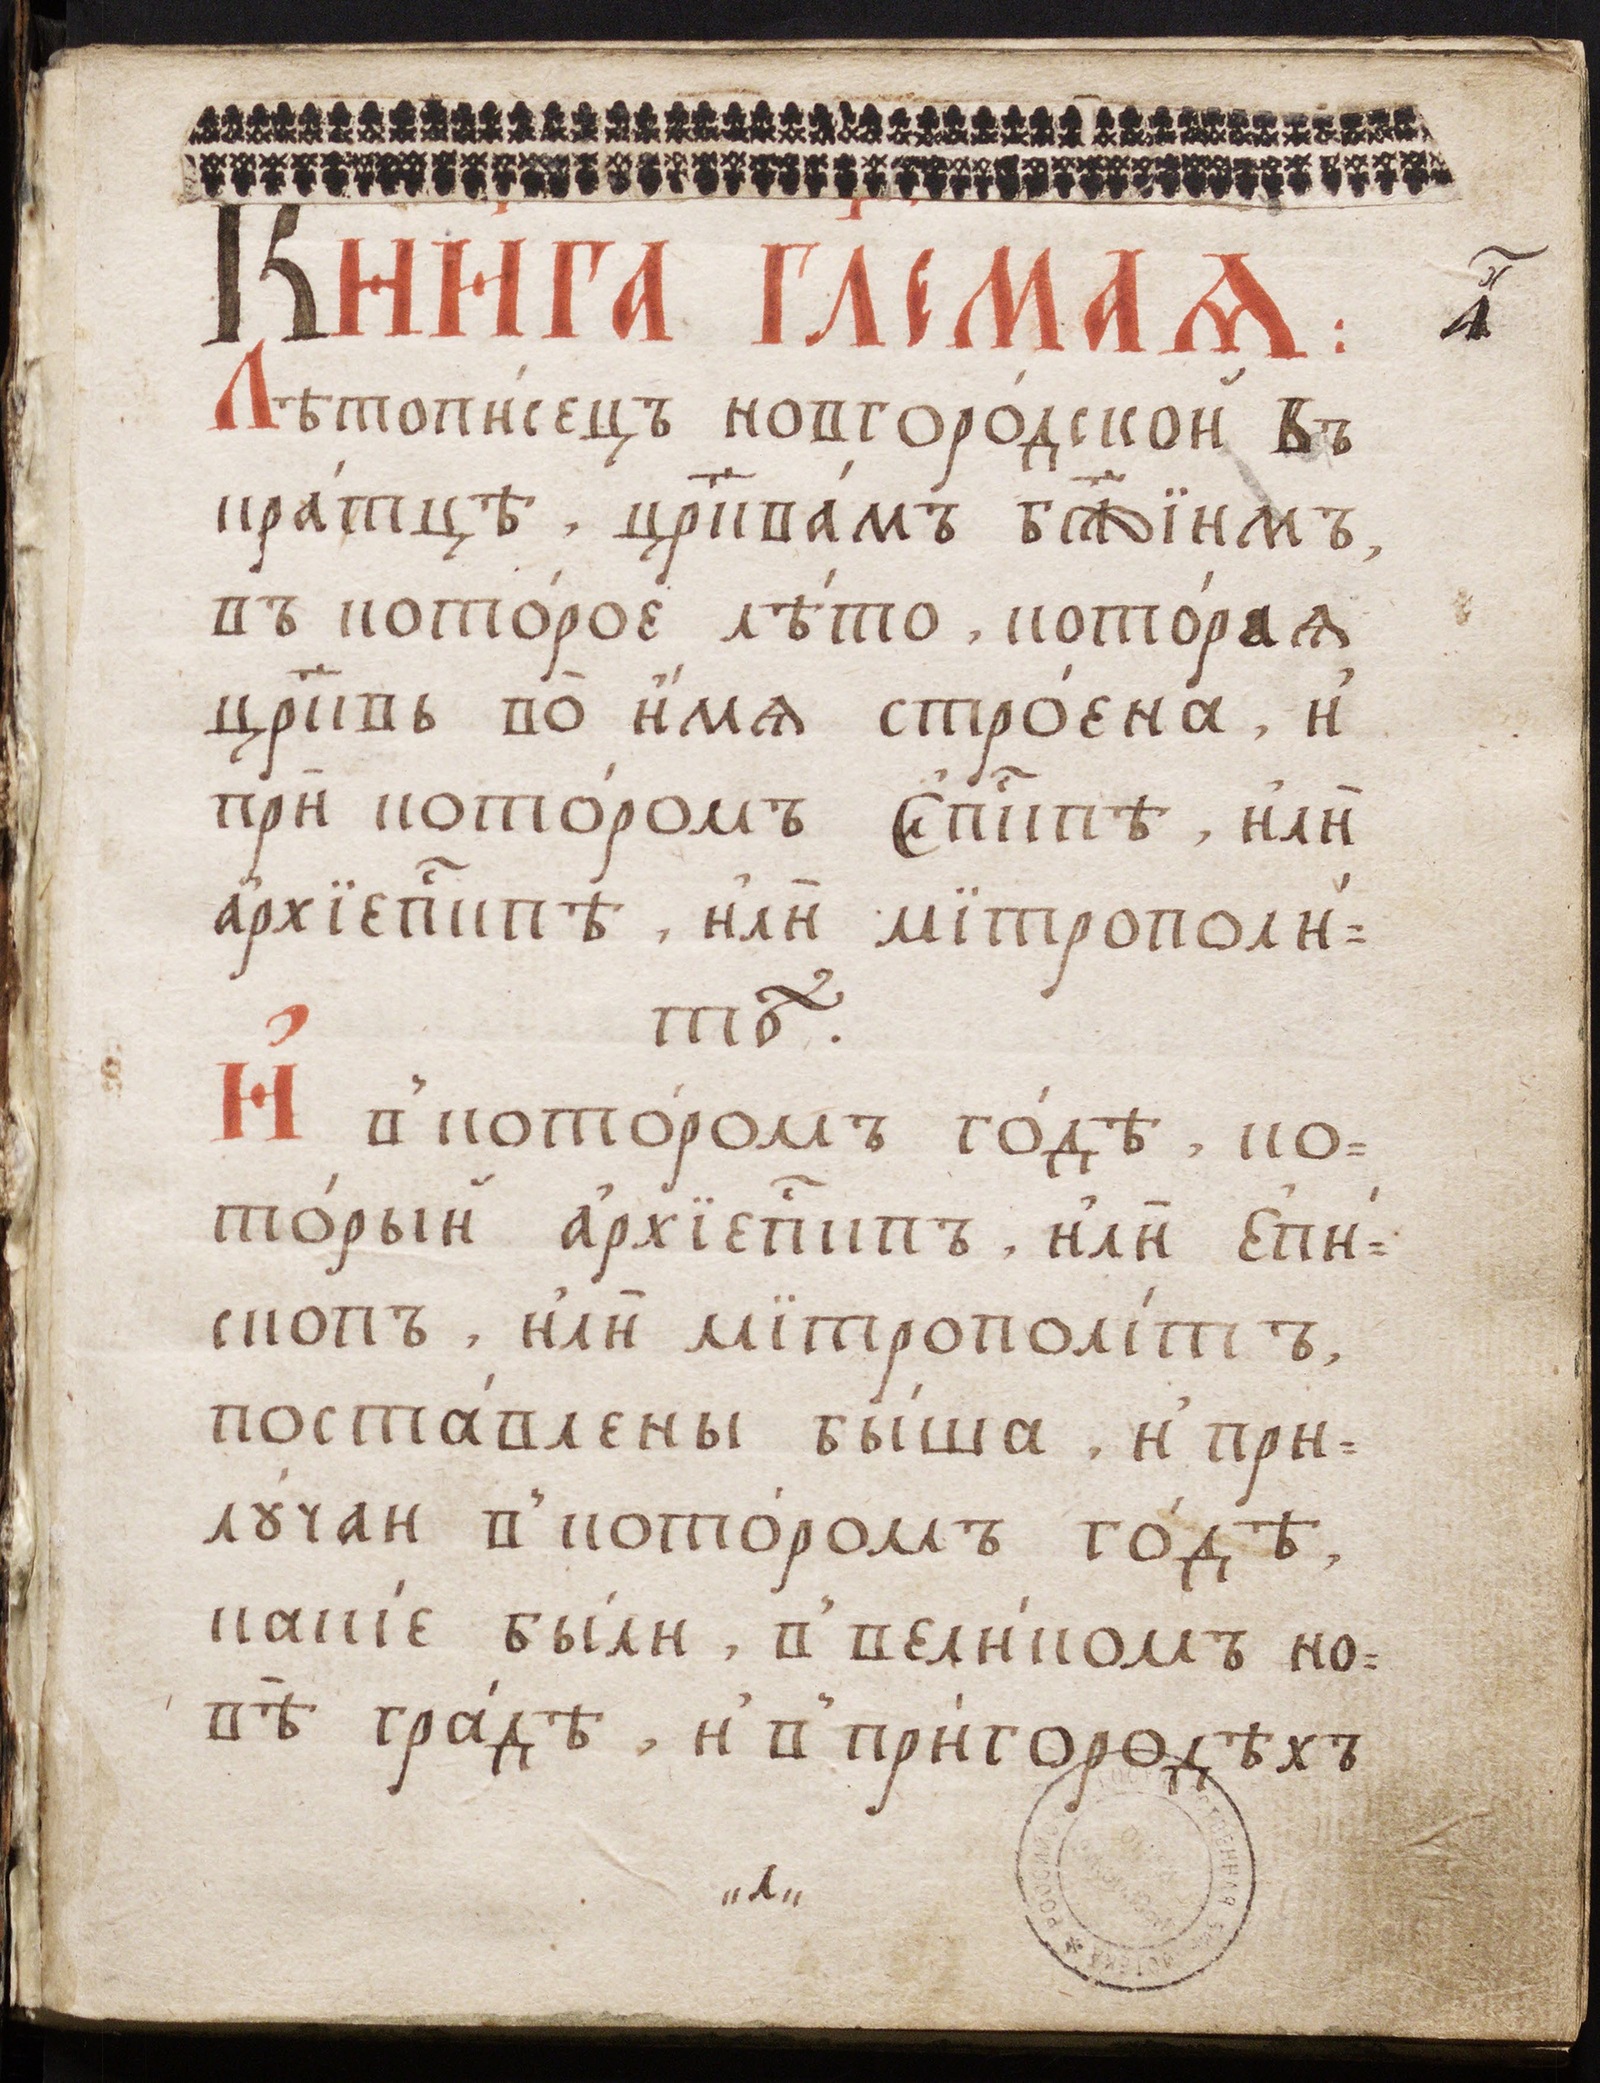 Кни́га гл҃емаѧ:
л҃и
Лѣтопи́сецъ новгоро́дской Въ
кра́тцѣ, цр҃ква́мъ бж҃їимъ,
въ кото́рое лѣ́то, кото́раѧ
цр҃ковь во̀ и҆́мѧ стро́ена, и҆
прѝ кото́ромъ Є҆пⷭ҇кпѣ, и҆лѝ
а҆рхїепⷭ҇кпѣ, и҆лѝ мїтрополи́=
тѣ.
И҆ в̾ кото́ромъ го́дѣ, ко=
то́рый а҆рхїепⷭ҇кпъ, и҆лѝ є҆пи=
скопъ, и҆лѝ мїтрополі́тъ,
поста́влены бы́ша, и҆ при=
лꙋ́чаи в̾ кото́ромъ го́дѣ,
какі́е бы́ли, в̾ вели́комъ но=
вѣ̀ гра́дѣ, и҆ в̾ при́городѣхъ
„л„